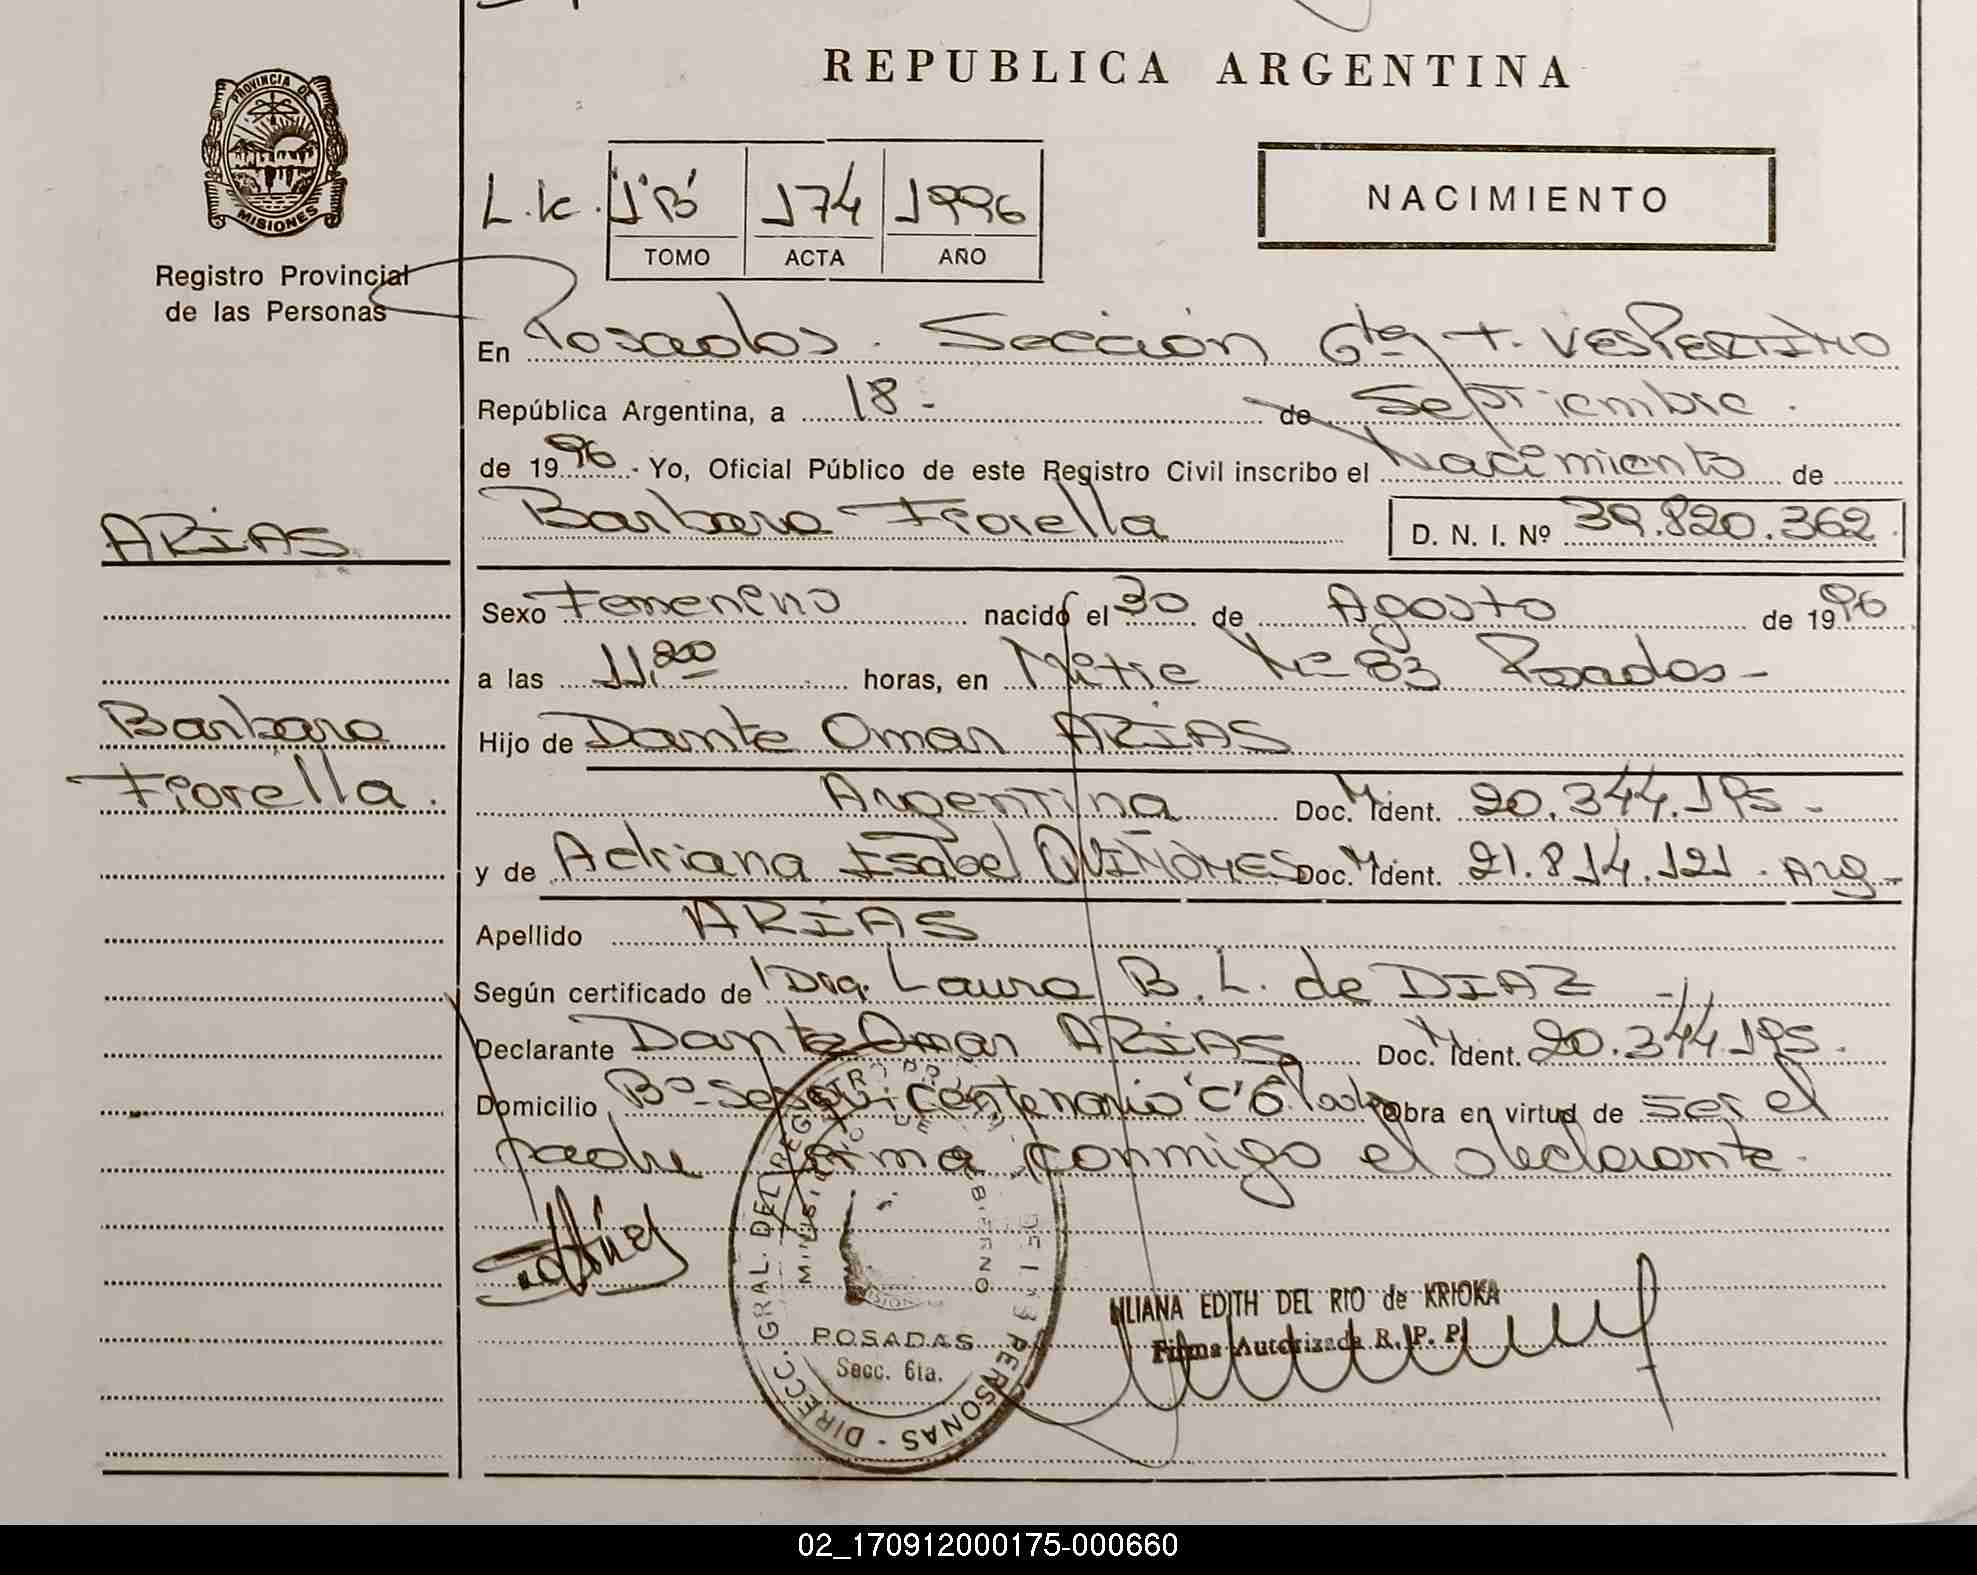 REPUBLICA ARGENTINA
PROVINCIA DE
MISIONES
Registro Provincial
de las Personas
NACIMIENTO
L.k. 1"B" 174 1996
TOMO ACTA AÑO
En Posadas. Sección 6ta T. VESPERTINO
República Argentina, a 18- de Septiembre.
de 1996.- Yo, Oficial Público de este Registro Civil inscribo el Nacimiento de
Barbara Fiorella D. N. I. Nº 39.820.362.
ARIAS
Sexo Femenino nacido el 30 de Agosto de 1996
a las 11,20 horas, en Mitre Nº 83 Posadas-
Barbara
Fiorella.
Hijo de Dante Omar ARIAS
Argentina Doc. M Ident. 20.344.195-
y de Adriana Isabel QUIÑONES Doc. M Ident. 21.814.121. Arg-
Apellido ARIAS
Según certificado de Dra. Laura B. L. de DIAZ-
Declarante Dante Omar ARIAS Doc. M Ident. 20.344.195.
Domicilio Bº Sesquicentenario "C" 6. Obra en virtud de ser el
padre firma conmigo el declarante.
DIRECC. GRAL. DEL REGISTRO DE LAS PERSONAS
MINISTERIO DE GOBIERNO
POSADAS
Secc. 6ta.
LILIANA EDITH DEL RIO de KRIOKA
Firma Autorizada R. P. P.
02_170912000175-000660